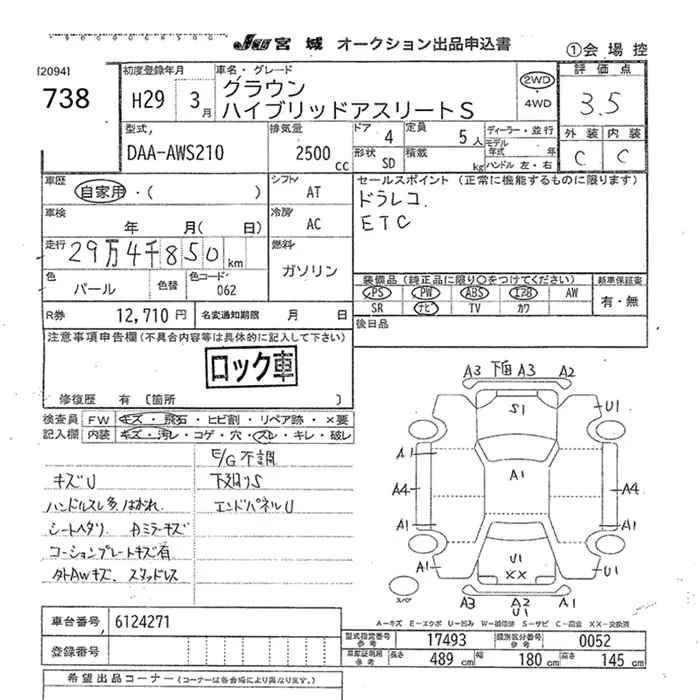 JU 宮城 オークション出品申込書
①会場控
[2094]
738
初度登録年月
H29 3月
車名・グレード
クラウン
ハイブリッドアスリートS
2WD
・
4WD
評価点
3.5
外装 内装
C C
型式
DAA-AWS210
排気量
2500 cc
ドア 4
定員 5人
形状 SD
積載 kg
ディーラー・並行
モデル年式 年
ハンドル 左・右
車歴
自家用・( )
シフト AT
セールスポイント (正常に機能するものに限ります)
ドラレコ.
ETC
車検
年 月( 日)
冷房 AC
走行
29万4千850km
燃料
ガソリン
色
パール
色替
色コード
062
装備品 (純正品に限り○をつけてください)
PS PW ABS エアB AW
SR ナビ TV カワ
新車保証書
有・無
R券 12,710円
名変通知期限 月 日
後日品
注意事項申告欄(不具合内容等は具体的に記入して下さい)
ロック車
修復歴 有 〔箇所 〕
検査員 FW キズ・飛石・ヒビ割・リペア跡・×要
記入欄 内装 キズ・汚レ・コゲ・穴・スレ・キレ・破レ
E/G不調
キズU
下廻りS
ハンドルスレ多、はがれ
エンドパネルU
シートヘタリ
Aミラーキズ
コーションプレートキズ有
タトAWキズ、スタッドレス
A3 下回A3 A2
S1
U1
A1
A1
A4
A4
A1
A1
A1
U1
××
A1
U1
A3 A2 A3
U1
スペア
A-キズ E-エクボ U-凹み W-補修跡 S-サビ C-腐食 XX-交換済
車台番号 6124271
登録番号
型式指定番号 参考 17493
類別区分番号 参考 0052
車庫証明用 参考 長さ 489cm 幅 180cm 高さ 145cm
希望出品コーナー (コーナーは各会場により異なります。)